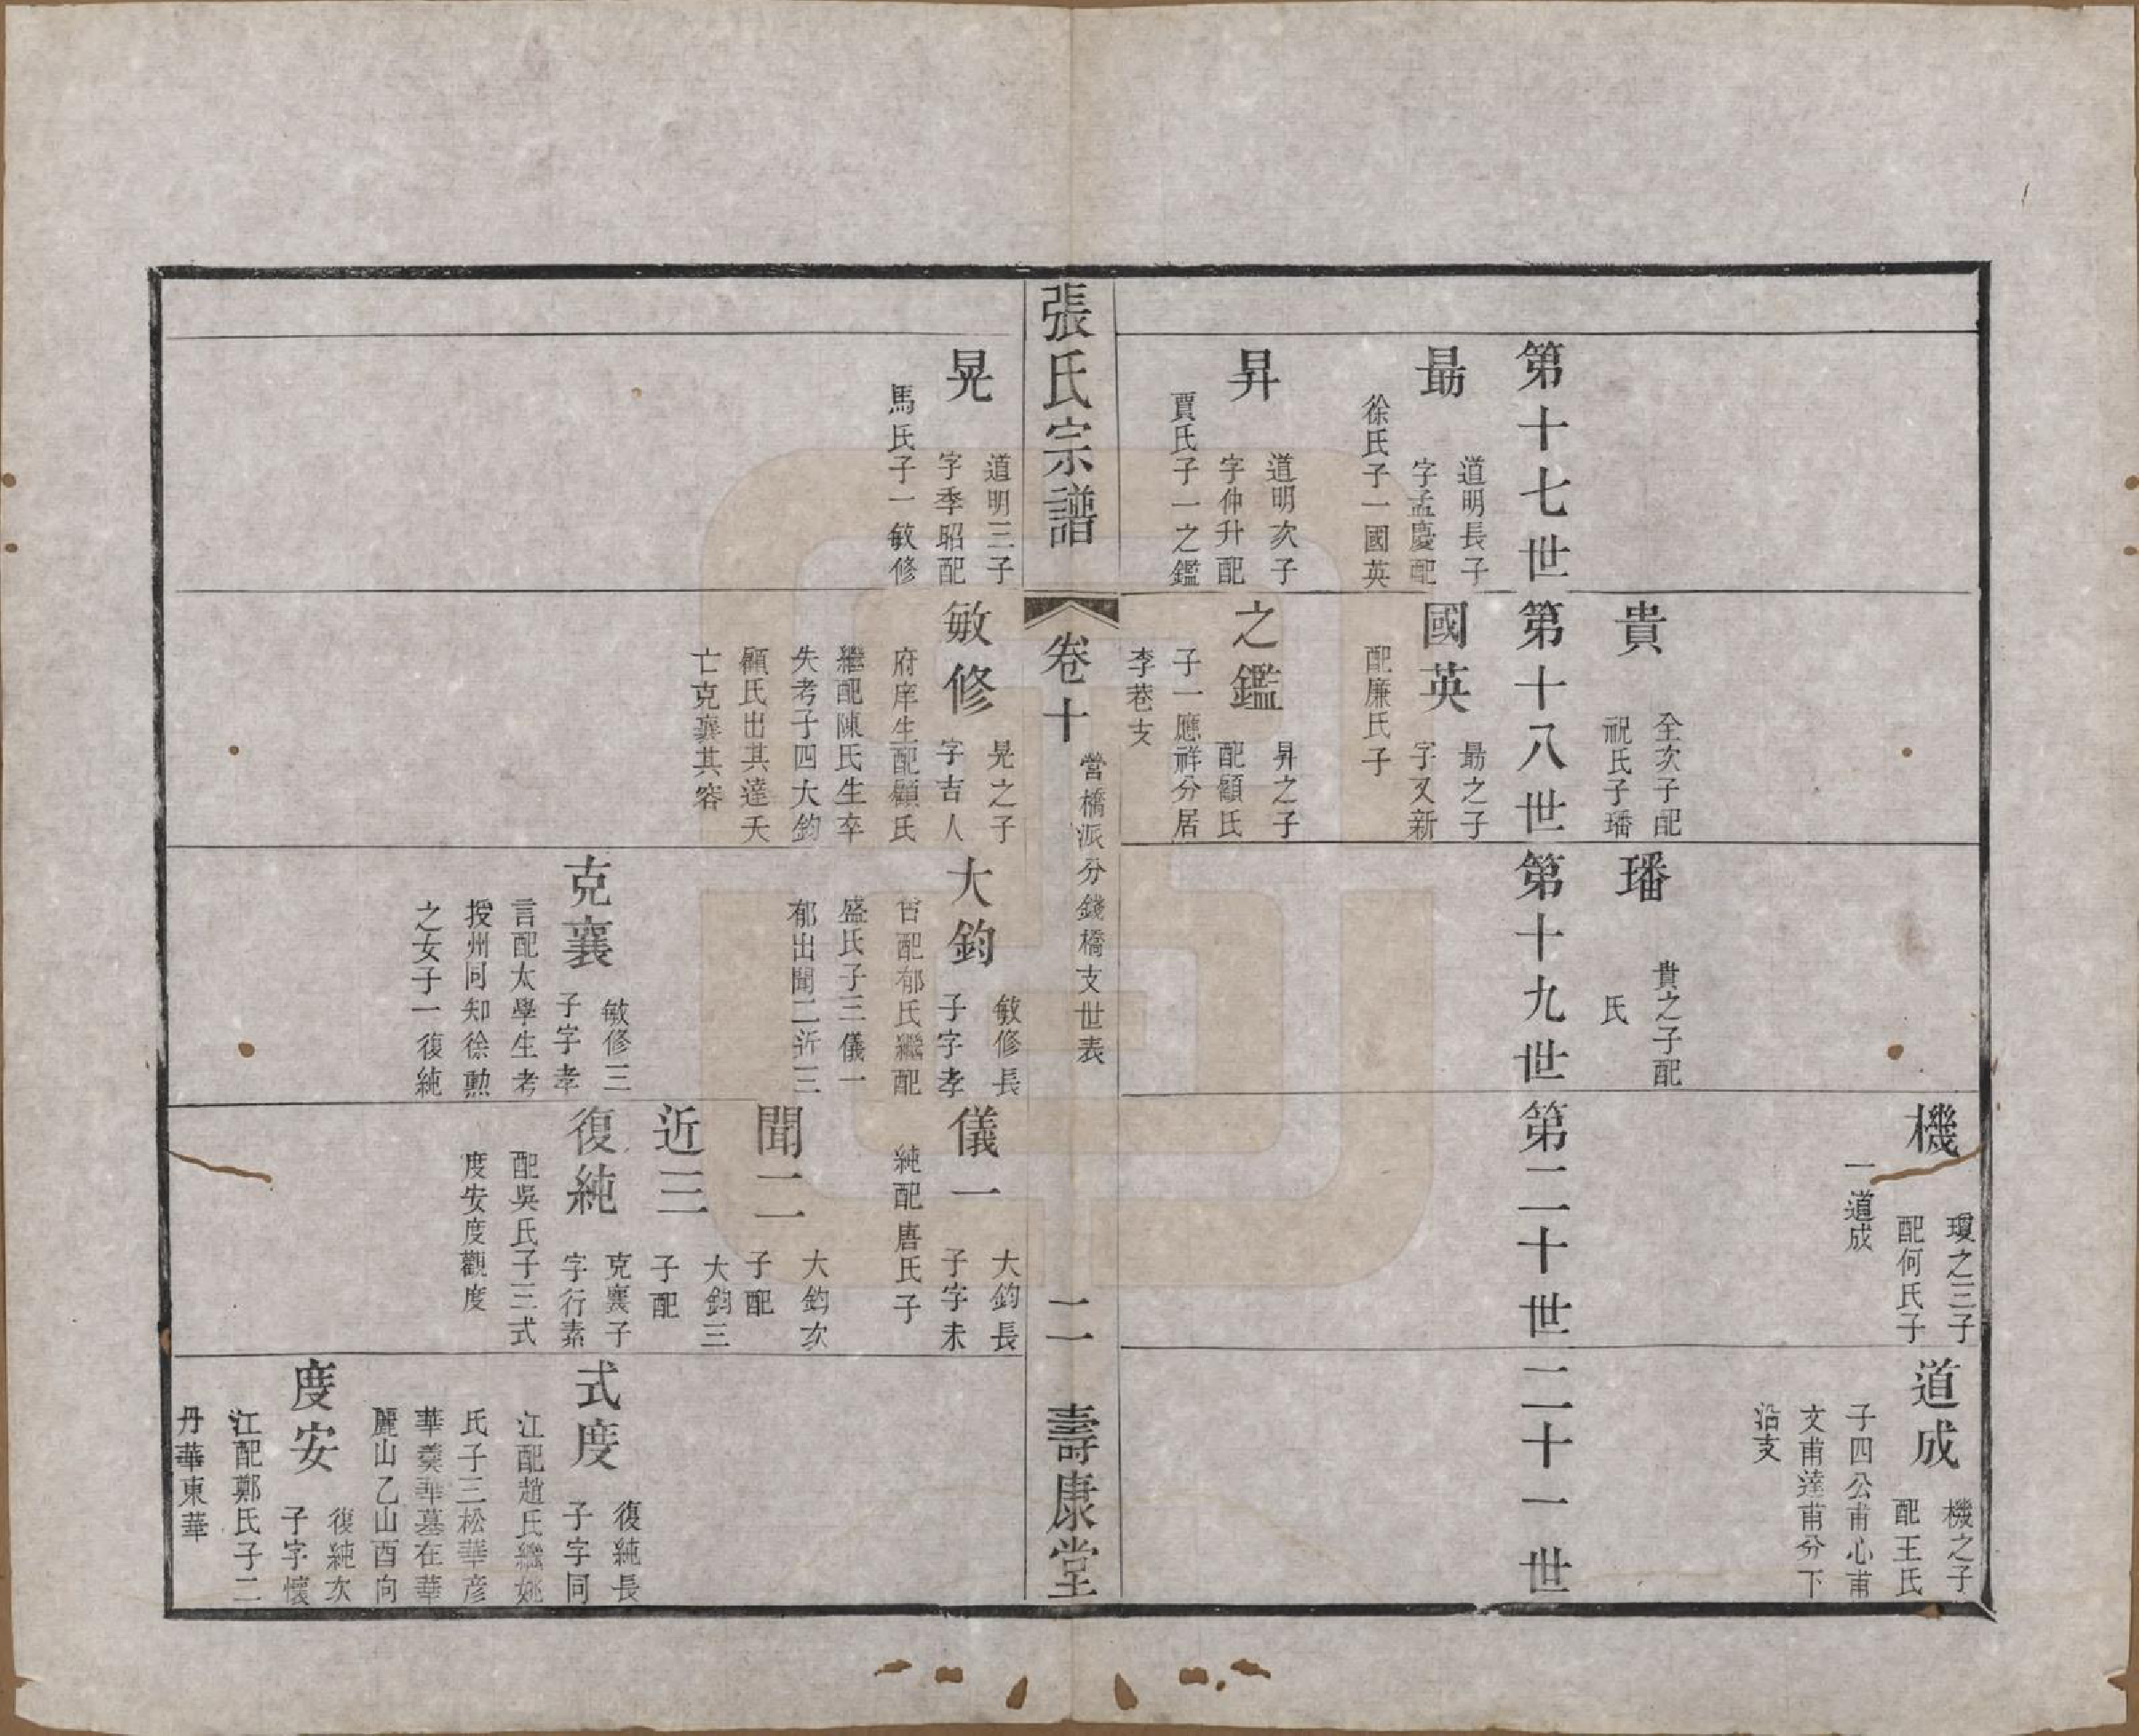 貴
全次子配
祝氏子璠
璠
貴之子配
氏
機
瓊之三子
配何氏子
一道成
道成
機之子
配王氏
子四公甫心甫
文甫達甫分下
沿支
第十七世
第十八世
第十九世
第二十世
二十一世
勗
道明長子
字孟慶配
徐氏子一國英
國英
勗之子
字又新
配廉氏子
昇
道明次子
字仲升配
賈氏子一之鑑
之鑑
昇之子
配顧氏
子一應祥分居
李巷支
張氏宗譜
卷十
營橋派分錢橋支世表
二
壽康堂
晃
道明三子
字季昭配
馬氏子一敏修
敏修
晃之子
字吉人
府庠生配顧氏
繼配陳氏生卒
失考子四大鈞
顧氏出其達夭
亡克襄其容
大鈞
敏修長
子字孝
配郁氏繼配
盛氏子三儀一
郁出聞二近三
儀一
大鈞長
子字未
純配唐氏子
聞二
大鈞次
子配
近三
大鈞三
子配
克襄
敏修三
子字孝
言配太學生考
授州同知徐勲
之女子一復純
復純
克襄子
字行素
配吳氏子三式
度安度觀度
式度
復純長
子字同
江配趙氏繼姚
氏子三松華彥
華羮華墓在華
麗山乙山酉向
度安
復純次
子字懷
江配鄭氏子二
丹華東華